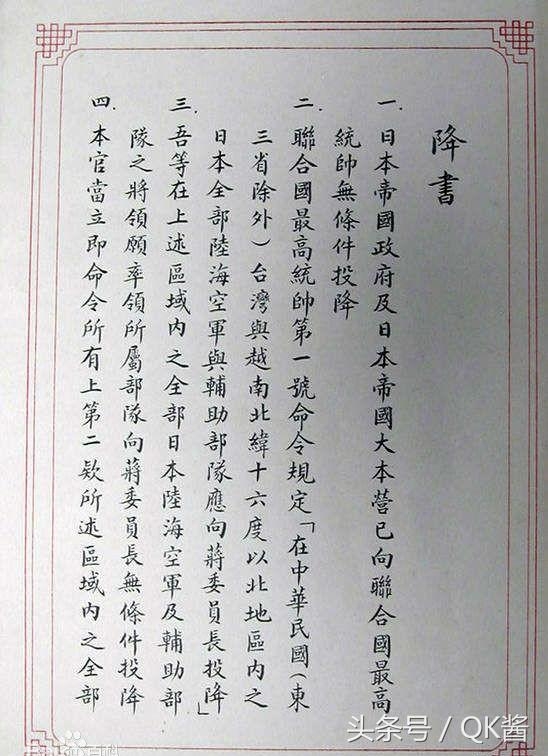 降書
一. 日本帝國政府及日本帝國大本營已向聯合國最高
統帥無條件投降
二. 聯合國最高統帥第一號命令規定「在中華民國(東
三省除外)台灣與越南北緯十六度以北地區內之
日本全部陸海空軍與輔助部隊應向蔣委員長投降」
三. 吾等在上述區域內之全部日本陸海空軍及輔助部
隊之將領願率領所屬部隊向蔣委員長無條件投降
四. 本官當立即命令所有上第二欵所述區域內之全部
头条号 / QK酱
百科